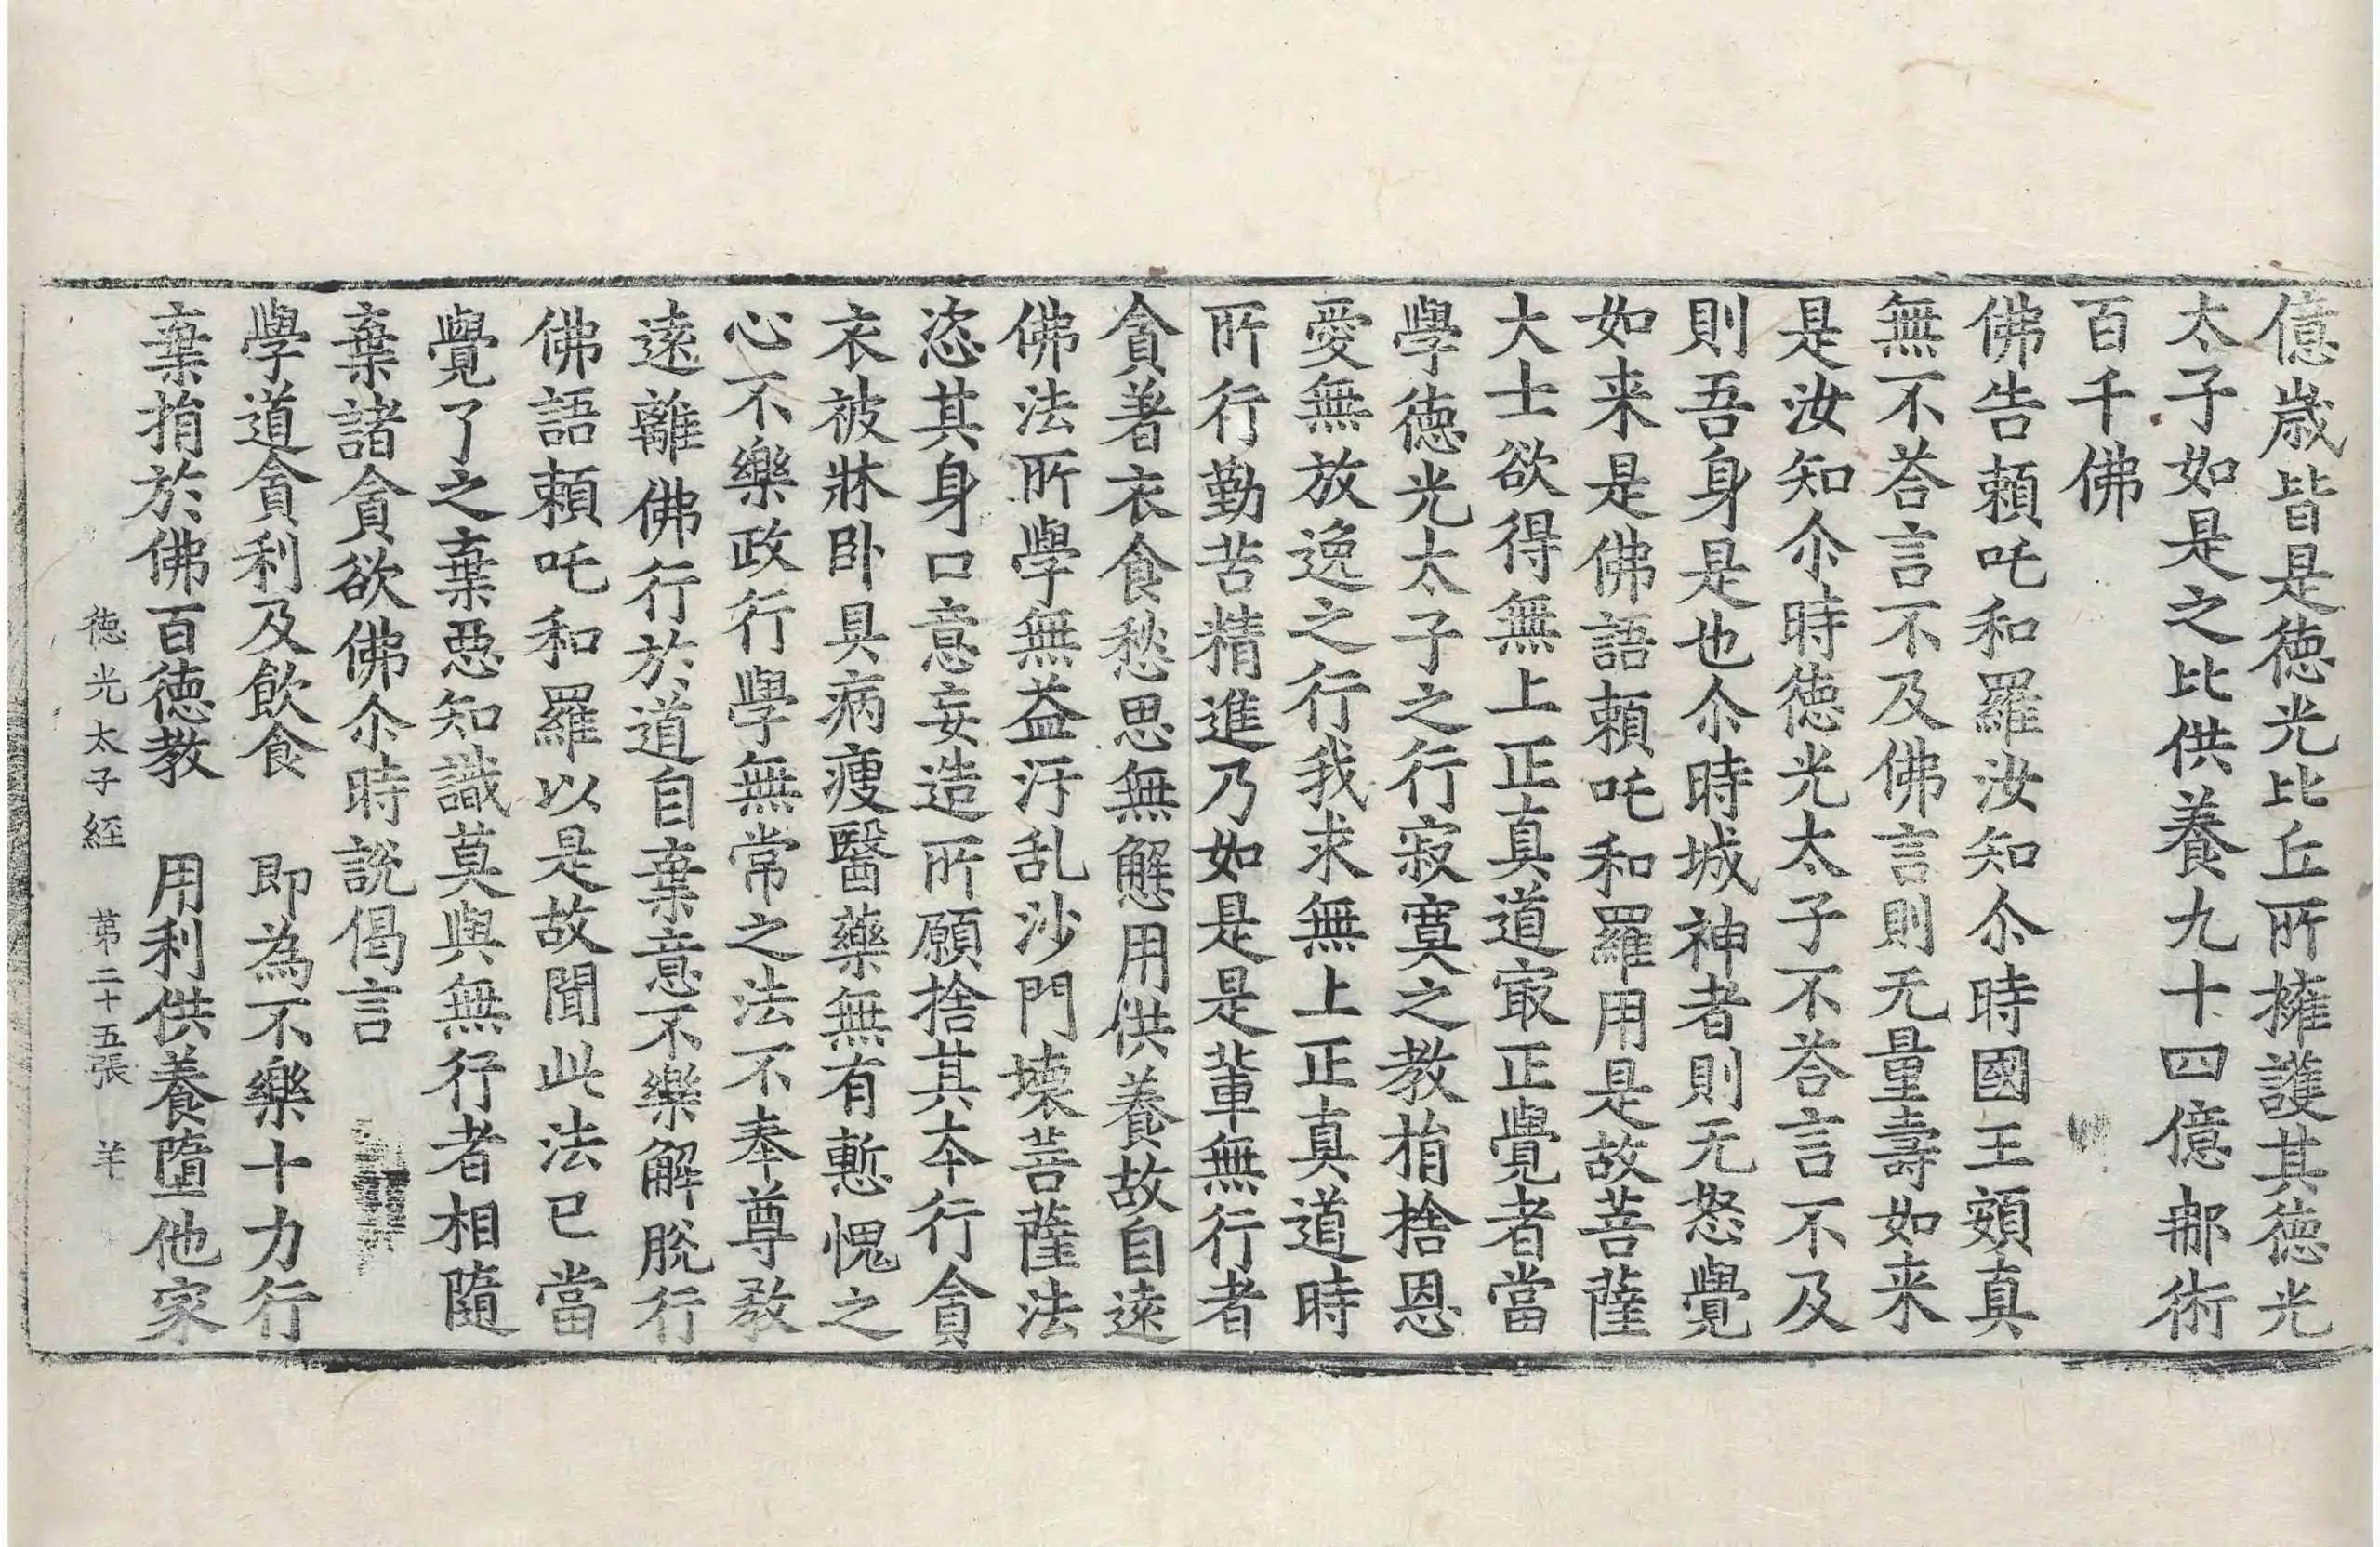 億歲皆是德光比丘所擁護其德光
太子如是之比供養九十四億那術
百千佛
佛告賴吒和羅汝知尒時國王頞真
無不荅言不及佛言則无量壽如来
是汝知尒時德光太子不荅言不及
則吾身是也尒時城神者則无怒覺
如来是佛語賴吒和羅用是故菩薩
大士欲得無上正真道㝡正覺者當
學德光太子之行寂寞之教捐捨恩
愛無放逸之行我求無上正真道時
所行勤苦精進乃如是是輩無行者
貪著衣食愁思無解用供養故自遠
佛法所學無益汙乱沙門壞菩薩法
恣其身口意妄造所願捨其本行貪
衣被牀卧具病瘦醫藥無有慙愧之
心不樂政行學無常之法不奉尊教
遠離佛行於道自棄意不樂解脫行
佛語賴吒和羅以是故聞此法已當
覺了之棄惡知識莫與無行者相隨
棄諸貪欲佛尒時說偈言
學道貪利及飲食　即為不樂十力行
棄捐於佛百德教　用利供養墮他家
德光太子経　第二十五張　羊